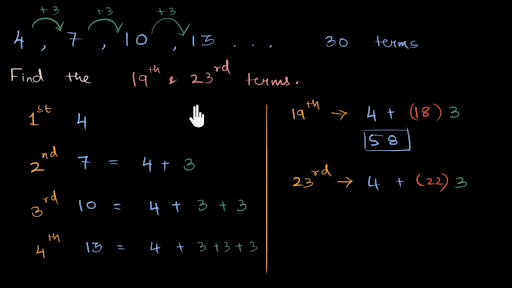 +3 +3 +3
4, 7, 10, 13 ... 30 terms
Find the 19th & 23rd terms.
1st 4
2nd 7 = 4 + 3
3rd 10 = 4 + 3 + 3
4th 13 = 4 + 3+3+3
19th → 4 + (18) 3
58
23rd → 4 + (22) 3